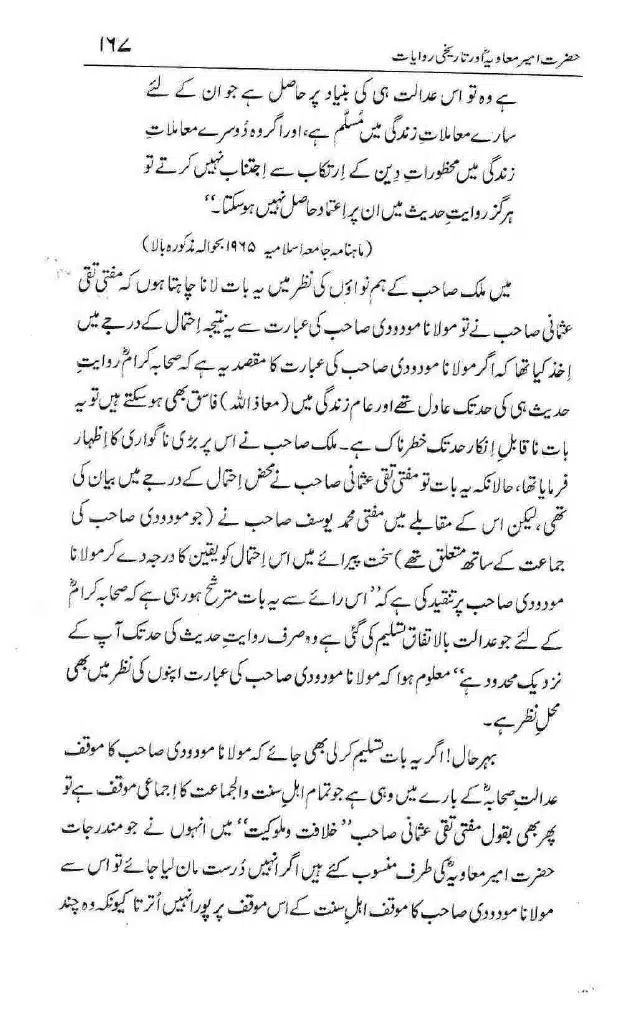 حضرت امیر معاویہؓ اور تاریخی روایات
۱۶۷
ہے وہ تو اس عدالت ہی کی بنیاد پر حاصل ہے جو ان کے لئے
سارے معاملاتِ زندگی میں مُسلَّم ہے، اور اگر وہ دُوسرے معاملاتِ
زندگی میں محظوراتِ دِین کے اِرتکاب سے اِجتناب نہیں کرتے تو
ہرگز روایتِ حدیث میں ان پر اِعتماد حاصل نہیں ہوسکتا۔“
(ماہنامہ جامعہ اسلامیہ ۱۹۶۵ بحوالہ مذکورہ بالا)
میں ملک صاحب کے ہم نواؤں کی نظر میں یہ بات لانا چاہتا ہوں کہ مفتی تقی
عثمانی صاحب نے تو مولانا مودودی صاحب کی عبارت سے یہ نتیجہ اِحتمال کے درجے میں
اِخذ کیا تھا کہ اگر مولانا مودودی صاحب کی عبارت کا مقصد یہ ہے کہ صحابہ کرامؓ روایتِ
حدیث ہی کی حد تک عادل تھے اور عام زندگی میں (معاذ اللہ) فاسق بھی ہوسکتے ہیں تو یہ
بات ناقابلِ اِنکار حد تک خطرناک ہے۔ ملک صاحب نے اس پر بڑی ناگواری کا اِظہار
فرمایا تھا، حالانکہ یہ بات تو مفتی تقی عثمانی صاحب نے محض اِحتمال کے درجے میں بیان کی
تھی، لیکن اس کے مقابلے میں مفتی محمد یوسف صاحب نے (جو مودودی صاحب کی
جماعت کے ساتھ متعلق تھے) سخت پیرائے میں اس اِحتمال کو یقین کا درجہ دے کر مولانا
مودودی صاحب پر تنقید کی ہے کہ ”اس رائے سے یہ بات مترشح ہو رہی ہے کہ صحابہ کرامؓ
کے لئے جو عدالت بالاتفاق تسلیم کی گئی ہے وہ صرف روایتِ حدیث کی حد تک آپ کے
نزدیک محدود ہے“ معلوم ہوا کہ مولانا مودودی صاحب کی عبارت اپنوں کی نظر میں بھی
محلِ نظر ہے۔
بہرحال! اگر یہ بات تسلیم کر لی بھی جائے کہ مولانا مودودی صاحب کا موقف
عدالتِ صحابہؓ کے بارے میں وہی ہے جو تمام اہلِ سنت والجماعت کا اِجماعی موقف ہے تو
پھر بھی بقول مفتی تقی عثمانی صاحب ”خلافت و ملوکیت“ میں انہوں نے جو مندرجات
حضرت امیر معاویہؓ کی طرف منسوب کئے ہیں اگر انہیں دُرست مان لیا جائے تو اس سے
مولانا مودودی صاحب کا موقف اہلِ سنت کے اس موقف پر پورا نہیں اُترتا کیونکہ وہ چند